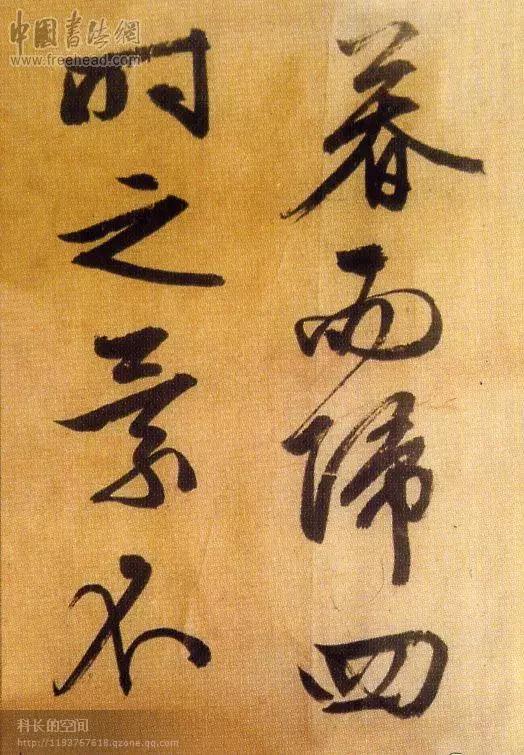 暮而歸四
時之景不
中國書法網
www.freehead.com
科长的空间
http://1193767618.qzone.qq.com